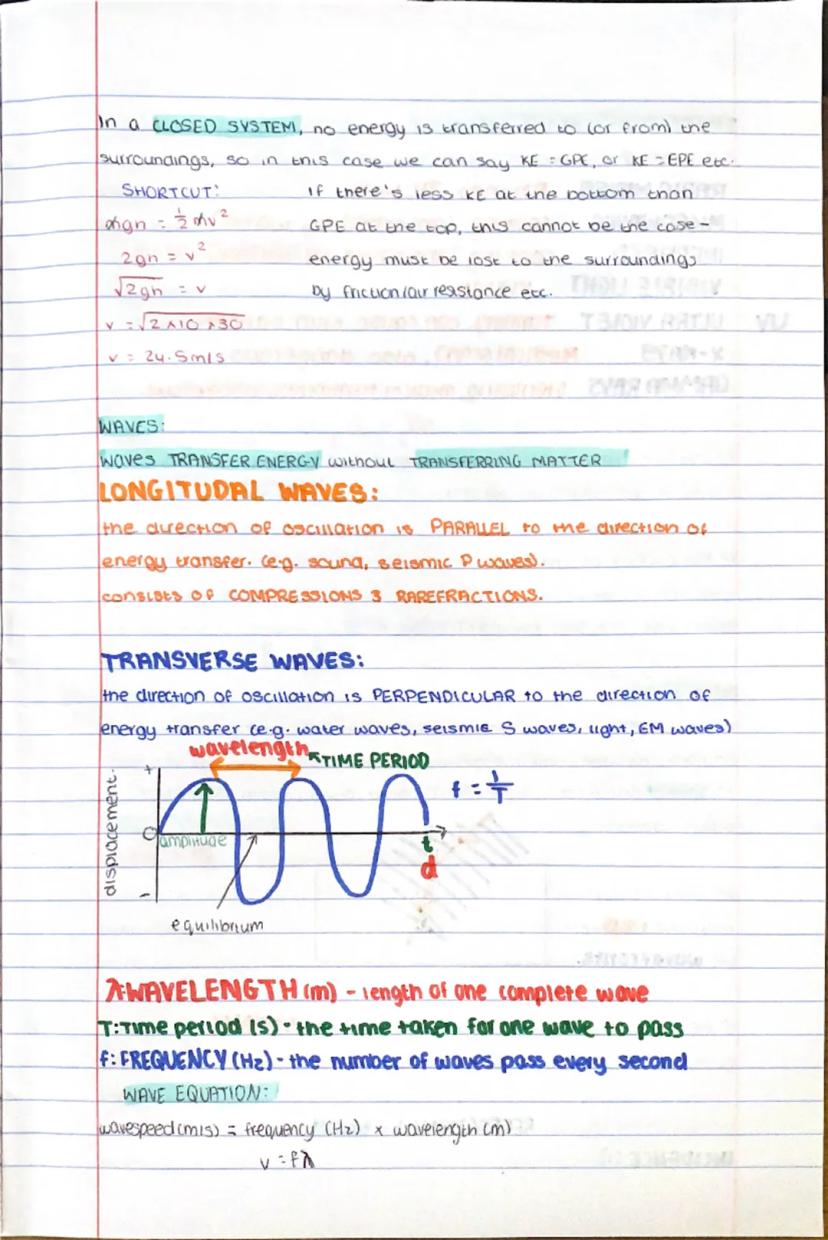 In a CLOSED SYSTEM, no energy is transferred to (or from) the
surroundings, so in this case we can say KE = GPE, or KE = EPE etc.
SHORTCUT:
mgh = ½mv²
2gh = v²
√2gh = v
v = √2×10×30
v = 24.5m/s
If there's less KE at the bottom than
GPE at the top, this cannot be the case -
energy must be lost to the surroundings
by friction/air resistance etc.
WAVES:
Waves TRANSFER ENERGY without TRANSFERRING MATTER
LONGITUDAL WAVES:
the direction of oscillation is PARALLEL to the direction of
energy transfer. (e.g. sound, seismic P waves).
consists of COMPRESSIONS & RAREFRACTIONS.
TRANSVERSE WAVES:
the direction of oscillation is PERPENDICULAR to the direction of
energy transfer (e.g. water waves, seismic S waves, light, EM waves)
wavelength
TIME PERIOD
f = 1/T
displacement.
+
0
-
amplitude
t
d
equilibrium
λ:WAVELENGTH (m) - length of one complete wave
T:Time period (s) - the time taken for one wave to pass
f: FREQUENCY (Hz) - the number of waves pass every second
WAVE EQUATION:
wavespeed (m/s) = frequency (Hz) x wavelength (m)
v = fλ